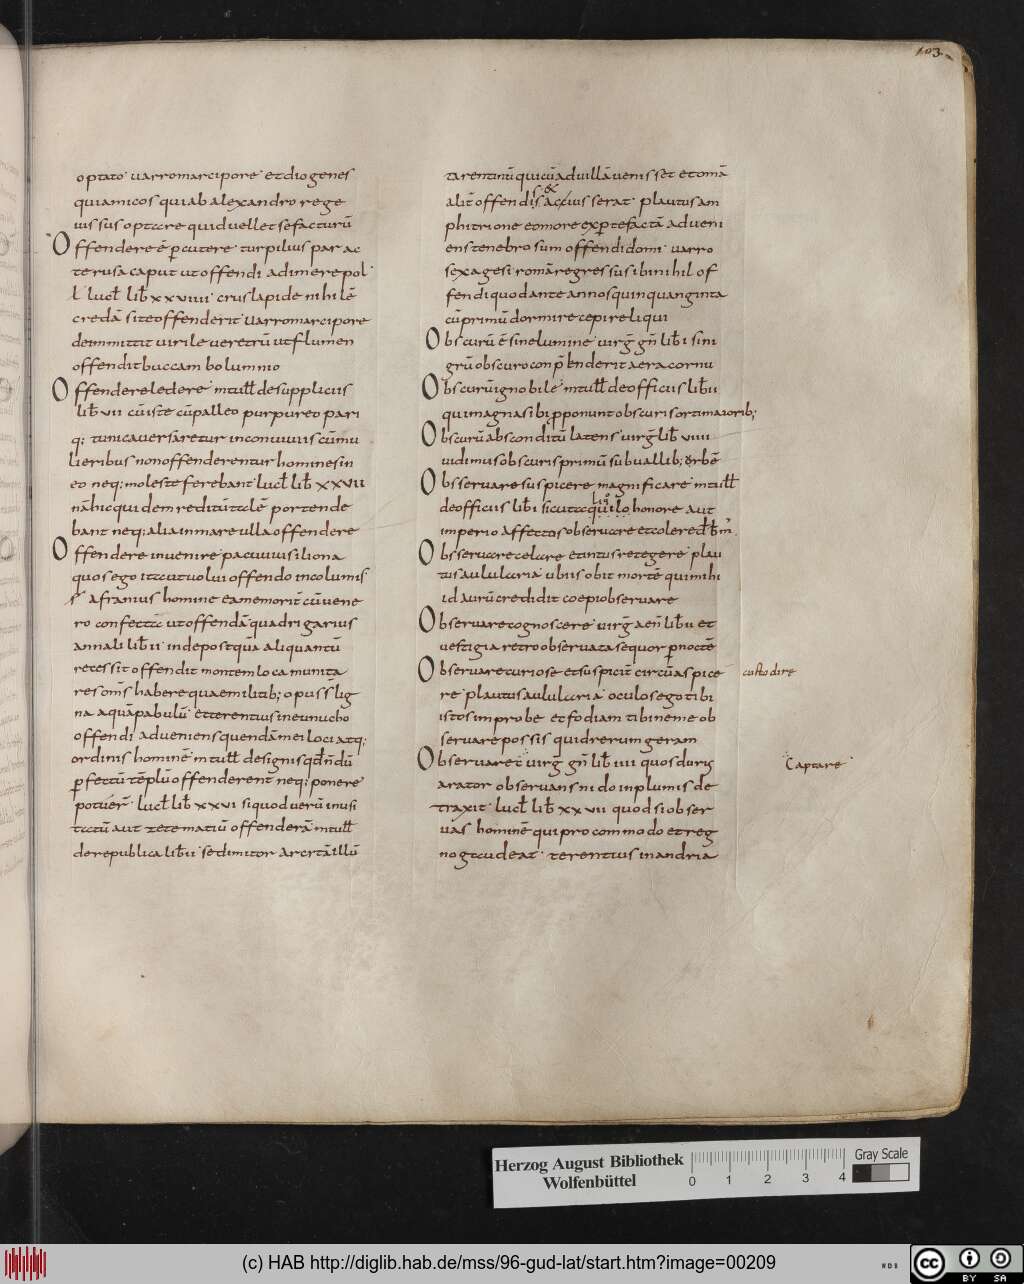 103
optato· uarromarcipore· et diogenes
qui amicos qui ab alexandro rege
iussus optare quid uellet se facturū
Offendere ē percutere· turpilius par ac
te rusa caput ut offendi adimere pol·
l· lucł lib̄ xxuiiii· crus lapide nihilē
credā si te offenderit· uarromarcipore
demmittit uirile ueretrū ut flumen
offendit buccam bolumnio
Offendere ledere· mtułł de suppliciis
lib̄ uii cū iste cū palleo purpureo pari
q; tunica uersaretur in conuiuiis cū mu
lieribus non offenderentur homines in
eo neq; moleste ferebant· lucł lib̄ xxuii
nā hic quidem reditū telē portende
bant neq; alia in mare ulla offendere
Offendere inuenire· pacuuius iliona
quos ego ita ut uolui offendo incolumis·
s· afranius homine ea memorit cū uene
ro confecta ut offendā quadrigarius
annali lib̄ ii· inde postquā aliquantū
recessit offendit montem loca munita
res om̄s habere quae militib; opus s̄ lig
na aquā pabulū· et terentius in eunucho
offendi adueniens quendā mei loci atq;
ordinis hominē· mtułł de signis qđ n̄dū
perfectū tēplū offenderent neq; ponere
potuer̄· lucł lib̄ xxui siquod uerū inusi
tatū aut zetematiū offenderā· mtułł
de republica lib̄ ii· sed imitor arcitā illū
tarentinū qui cū ad uillā uenisset et omā
alit̄ offendis accius serat· plautus am
phitrione eo more experte factā adueni
ens tenebrosum offendi domi· uarro
sexagesi· romā regressus ibi nihil of
fendi quod ante annos quinquaginta
cū primū dormire cepi reliqui
Obscurū ē sine lumine· uirḡ gn̄ lib̄ i sini
grū obscuro conp̄henderit aera cornu
Obscurū ignobile· mtułł de officiis lib̄ ii
qui magna sibi pponunt obscuris orti maiorib;
Obscurū absconditū latens· uirḡ lib̄ uiiii
uidimus obscuris primū sub uallib; urbē
Obsseruare suspicere magnificare· mtułł
de officiis lib̄ i sicut aequilo honore aut
imperio affectos obseruare et colere
Obsseruare celare et intus retegere· plau
tus aulularia· ubi is obit mortē qui mihi
id aurū credidit coepi obseruare
Obseruare cognoscere· uirḡ aen̄ lib̄ u et
uestigia retro obseruata sequor per noctē
Obseruare curiose et suspicit̄ circū aspice
re· plautus aulularia· oculos ego tibi
istos improbe et fodiam tibi ne me ob
seruare possis quid rerum geram
custodire
Obseruare ē uirḡ gn̄ lib̄ iiii quos durus
arator obseruans nido inplumis de
traxit· lucł lib̄ xxuii quod si obser
uas hominē qui pro commodo et reg
no gaudeat· terentius in andria
Captare
Herzog August Bibliothek
Wolfenbüttel
0 1 2 3 4
Gray Scale
(c) HAB http://diglib.hab.de/mss/96-gud-lat/start.htm?image=00209
WDB
cc BY SA